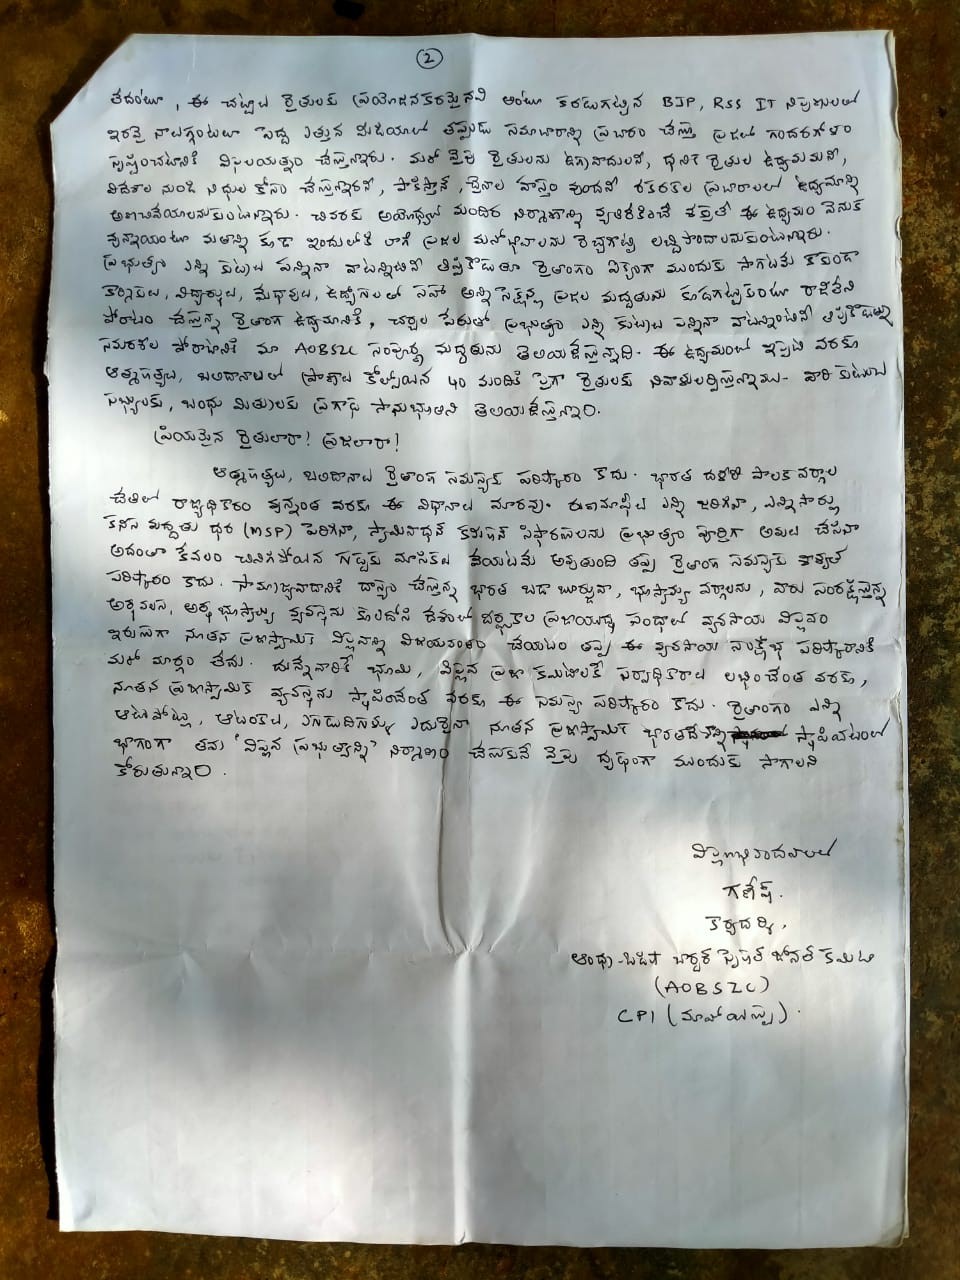 2
తేదంటూ, ఈ చట్టాలు రైతులకు ప్రయోజనకరమైనవి అంటూ కరడుగట్టిన BJP, RSS IT నిపుణులతో
ఇరవై నాలుగ్గంటలూ పెద్ద ఎత్తున మీడియాలో తప్పుడు సమాచారాన్ని ప్రచారం చేస్తే ప్రజల్లో గందరగోళం
సృష్టించటానికి విఫలయత్నం చేస్తున్నారు. మరో వైపు రైతులను ఉగ్రవాదులని, ధనిక రైతుల ఉద్యమమని,
విదేశాల నుండి నిధులు చేస్తున్నారని, పాకిస్తాన్, చైనాల హస్తం వుందని రకరకాల ప్రచారాలతో ఉద్యమాన్ని
అణచివేయాలనుకుంటున్నారు. చివరకు అయోధ్యలో మందిర నిర్మాణాన్ని వ్యతిరేకించే శక్తులే ఈ ఉద్యమం వెనుక
వున్నాయంటూ మతాన్ని కూడా ఇందులోకి లాగి ప్రజల మనోభావాలను రెచ్చగొట్టి లబ్ధిపొందాలనుకుంటున్నారు.
ప్రభుత్వం ఎన్ని కుట్రలు పన్నినా వాటన్నిటిని తిప్పికొడుతూ రైతాంగం ఐక్యంగా ముందుకు సాగటమే కాకుండా
కార్మికులు, విద్యార్థులు, మేధావులు, ఉద్యోగులతో సహా అన్ని సెక్షన్ల ప్రజల మద్దతును కూడగట్టుకుంటూ రాజీలేని
పోరాటం చేస్తున్న రైతాంగ ఉద్యమానికి, చర్చల పేరుతో ప్రభుత్వం ఎన్ని కుట్రలు పన్నినా వాటన్నింటిని తిప్పికొడుతున్న
సమరశీల పోరాటానికి మా AOBSZC సంపూర్ణ మద్దతును తెలియజేస్తున్నది. ఈ ఉద్యమంలో ఇప్పటి వరకూ
ఆత్మహత్యలు, బలిదానాలలో ప్రాణాలు కోల్పోయిన 40 మందికి పైగా రైతులకు నివాళులర్పిస్తున్నాము. వారి కుటుంబ
సభ్యులకు, బంధు మిత్రులకు ప్రగాఢ సానుభూతిని తెలియజేస్తున్నాం.
ప్రియమైన రైతులారా! ప్రజలారా!
ఆత్మహత్యలు, బలిదానాలు రైతాంగ సమస్యకు పరిష్కారం కాదు. భారత దళారీ పాలక వర్గాల
చేతిలో రాజ్యాధికారం వున్నంత వరకూ ఈ విధానాలు మారవు. రుణమాఫీలు ఎన్ని జరిగినా, ఎన్నిసార్లు
కనీస మద్దతు ధర (MSP) పెరిగినా, స్వామినాథన్ కమిషన్ సిఫారసులను ప్రభుత్వం పూర్తిగా అమలు చేసినా
అదంతా కేవలం చినిగిపోయిన గుడ్డకు మాసికలు వేయటమే అవుతుంది తప్ప రైతాంగ సమస్యకు శాశ్వత
పరిష్కారం కాదు. సామ్రాజ్యవాదానికి దాస్యం చేస్తున్న భారత బడా బూర్జువా, భూస్వామ్య వర్గాలను, వారు సంరక్షిస్తున్న
అర్ధవలస, అర్ధభూస్వామ్య వ్యవస్థను కూలదోసి దేశంలో దీర్ఘకాల ప్రజాయుద్ధ పంథాలో వ్యవసాయ విప్లవం
ఇరుసుగా నూతన ప్రజాస్వామిక విప్లవాన్ని విజయవంతం చేయటం తప్ప ఈ వ్యవసాయ సంక్షోభ పరిష్కారానికి
మరో మార్గం లేదు. దున్నేవారికే భూమి, విప్లవ ప్రజా కమిటీలకే సర్వాధికారాలు లభించేంత వరకూ,
నూతన ప్రజాస్వామిక వ్యవస్థను స్థాపించేంత వరకూ ఈ సమస్య పరిష్కారం కాదు. రైతాంగం ఎన్ని
ఆటుపోట్లు, ఆటంకాలు, ఎగుడుదిగుళ్ళు ఎదురైనా నూతన ప్రజాస్వామిక భారతదేశాన్ని స్థాపించటంలో
భాగంగా తమ 'విప్లవ ప్రభుత్వాన్ని' నిర్మాణం చేసుకునే వైపు దృఢంగా ముందుకు సాగాలని
కోరుతున్నాం.
విప్లవాభివాదనాలతో
గణేష్.
కార్యదర్శి,
ఆంధ్రా-ఒడిశా బార్డర్ స్పెషల్ జోనల్ కమిటి
(AOBSZC)
CPI (మావోయిస్టు).